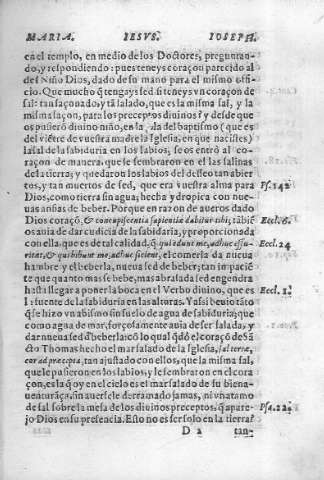 MARIA. IESVS. IOSEPH.
en el templo, en medio de los Doctores, preguntan-
do, y respondiendo: pues teneys coraçon parecido al
del Niño Dios, dado de su mano para el mismo offi-
cio. Que mucho q̃ tengays sed si teneys vn coraçon de
sal: tan saçonado, y tã salado, que es la misma sal, y la
misma saçon, para los preceptos diuinos? y desde que
os pusierõ diuino niño, en la pila del baptismo (que es
del viẽtre de vuestra madre la Iglesia, en que nacistes)
la sal de la sabiduria en los labios, se os entrò al co-
raçon de manera, que le sembraron en el las salinas
de la tierra; y quedaron los labios del desseo tan abier
tos, y tan muertos de sed, que era vuestra alma para
Dios, como tierra sin agua; hecha y dropica con nue-
uas ansias de beber. Porque en razon de aueros dado
Dios coraçõ, & concupiscentia sapientia dabitur tibi; tãbiẽ
os auia de dar cudicia de la sabidaria, y proporcionada
con ella. que es de tal calidad, q̃ qui edunt me, adhuc esu-
rient, & qui bibunt me, adhuc sicient, el comerla da nueua
hambre y el beberla, nueua sed de beber; tan impaciẽ
te que quanto mas se bebe, mas abrasa de sed engendra
hasta llegar a poner la boca en el Verbo diuino, que es
la fuente de la sabiduria en las alturas. Y assi beuio tãto
q̃ se hizo vn abismo sin suelo de agua de sabiduria; que
como agua de mar, forçosamente auia de ser salada, y
dar nueua sed d̃ beberla: cõ lo qual qdõ el coraçõ de Sã
cto Thomas hecho el mar salado de la Iglesia, sal terræ,
cor ad præcepta, tan ajustado con ellos, que la misma sal,
que le pusieron en los labios, y le sembraron en el cora
çon, es la q̃ oy en el cielo es el mar salado de su biena-
uenturãça, sin auersele derramado jamas, ni vn atamo
de sal sobre la mesa de los diuinos preceptos, q̃ apare-
jo Dios en su presencia. Esto no es ser solo en la tierra
D 2 tan-
Ps. 142
Eccl. 6.
Eccl. 24
Eccl. 1.
Psa. 22.